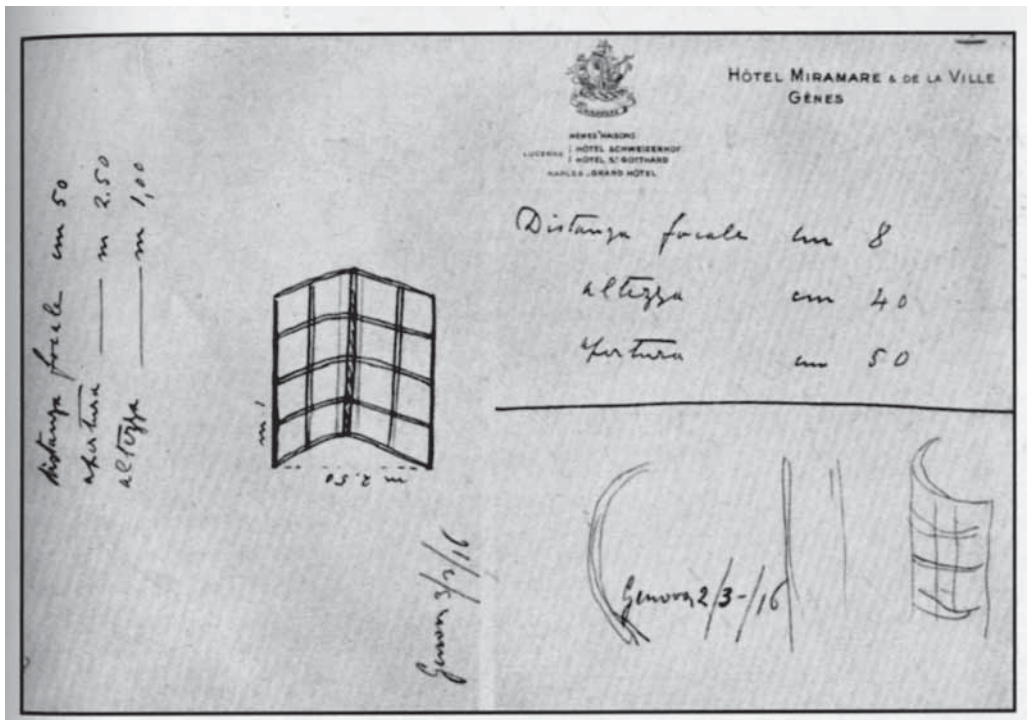 HÔTEL MIRAMARE & DE LA VILLE
GÊNES
MÊMES MAISONS
LUCERNE HÔTEL SCHWEIZERHOF
HÔTEL ST GOTTHARD
NAPLES . GRAND HÔTEL
Distanza focale cm 8
altezza cm 40
apertura cm 50
distanza focale cm 50
apertura m 2.50
altezza m 1,00
m 1
m 2.50
Genova 2/3-/16